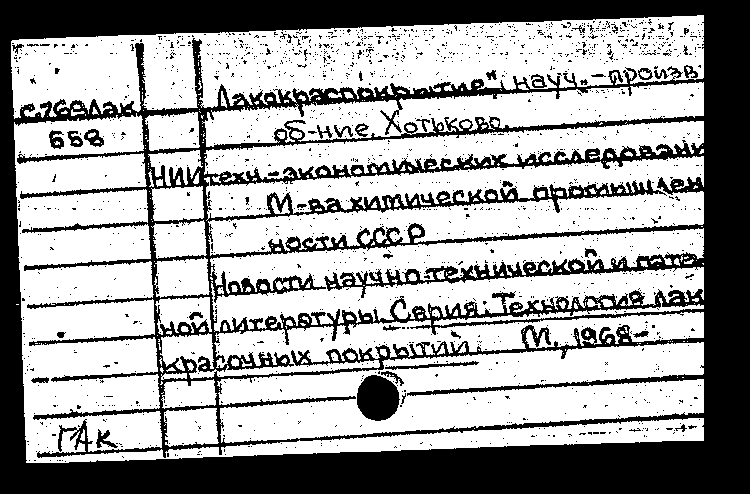 "Лакокраспокрытие", науч.-произв
с.769лак
об-ние, Хотьково.
658
НИИ техн.-экономических исследовани
М-ва химической промышлен
ности СССР
Новости научно-технической и пате
ной литературы. Серия: Технология лак
красочных покрытий. М., 1968-
ГАК